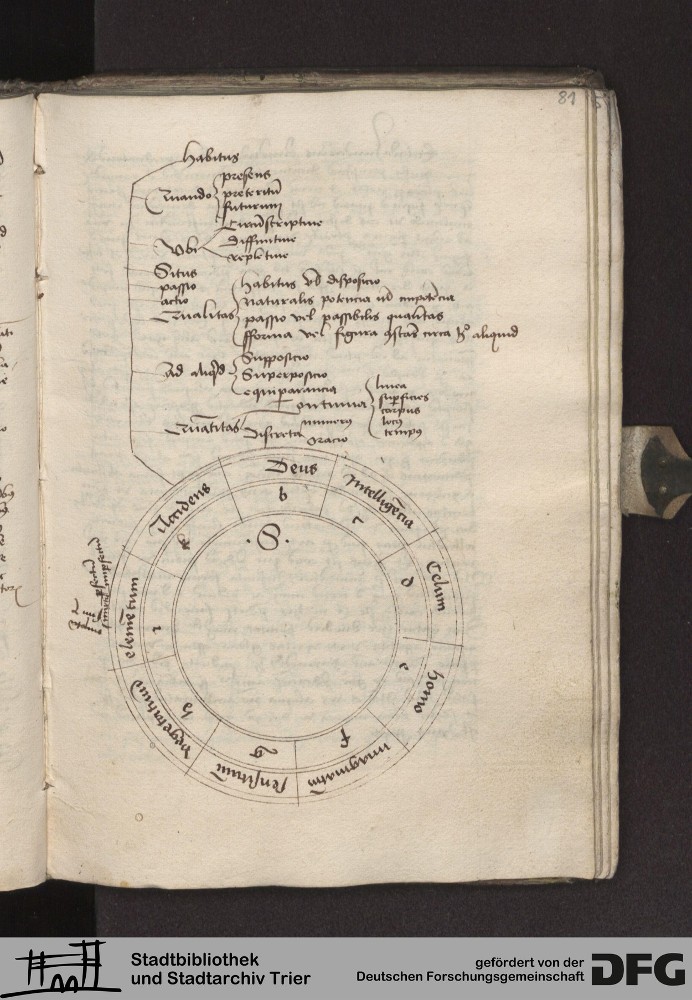 81
habitus
Quando
presens
preteritū
futurum
Vbi
Circūscriptiue
diffinitiue
repletiue
Situs
passio
actio
Qualitas
habitus vel disposicio
naturalis potencia vel impotēcia
passio vel passibilis qualitas
fforma vel figura circa aliquid
Ad aliqd
Supposicio
Superposicio
equiparancia
Quātitas
Continua
linea
supficies
corpus
locus
tempus
Discreta
numerus
oracio
Deus
b
Intelligēcia
c
Celum
d
homo
e
imaginatiū
f
sensitiuū
g
vegetatiuū
h
elemētum
i
Accidens
k
.S.
Stadtbibliothek
und Stadtarchiv Trier
gefördert von der
Deutschen Forschungsgemeinschaft
DFG